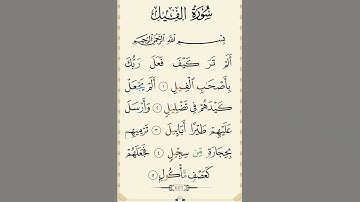 سُورَةُ الفِيلِ
بِسْمِ اللَّهِ الرَّحْمَٰنِ الرَّحِيمِ
أَلَمْ تَرَ كَيْفَ فَعَلَ رَبُّكَ
بِأَصْحَابِ الْفِيلِ ١ أَلَمْ يَجْعَلْ
كَيْدَهُمْ فِي تَضْلِيلٍ ٢ وَأَرْسَلَ
عَلَيْهِمْ طَيْرًا أَبَابِيلَ ٣ تَرْمِيهِم
بِحِجَارَةٍ مِّن سِجِّيلٍ ٤ فَجَعَلَهُمْ
كَعَصْفٍ مَّأْكُولٍ ٥